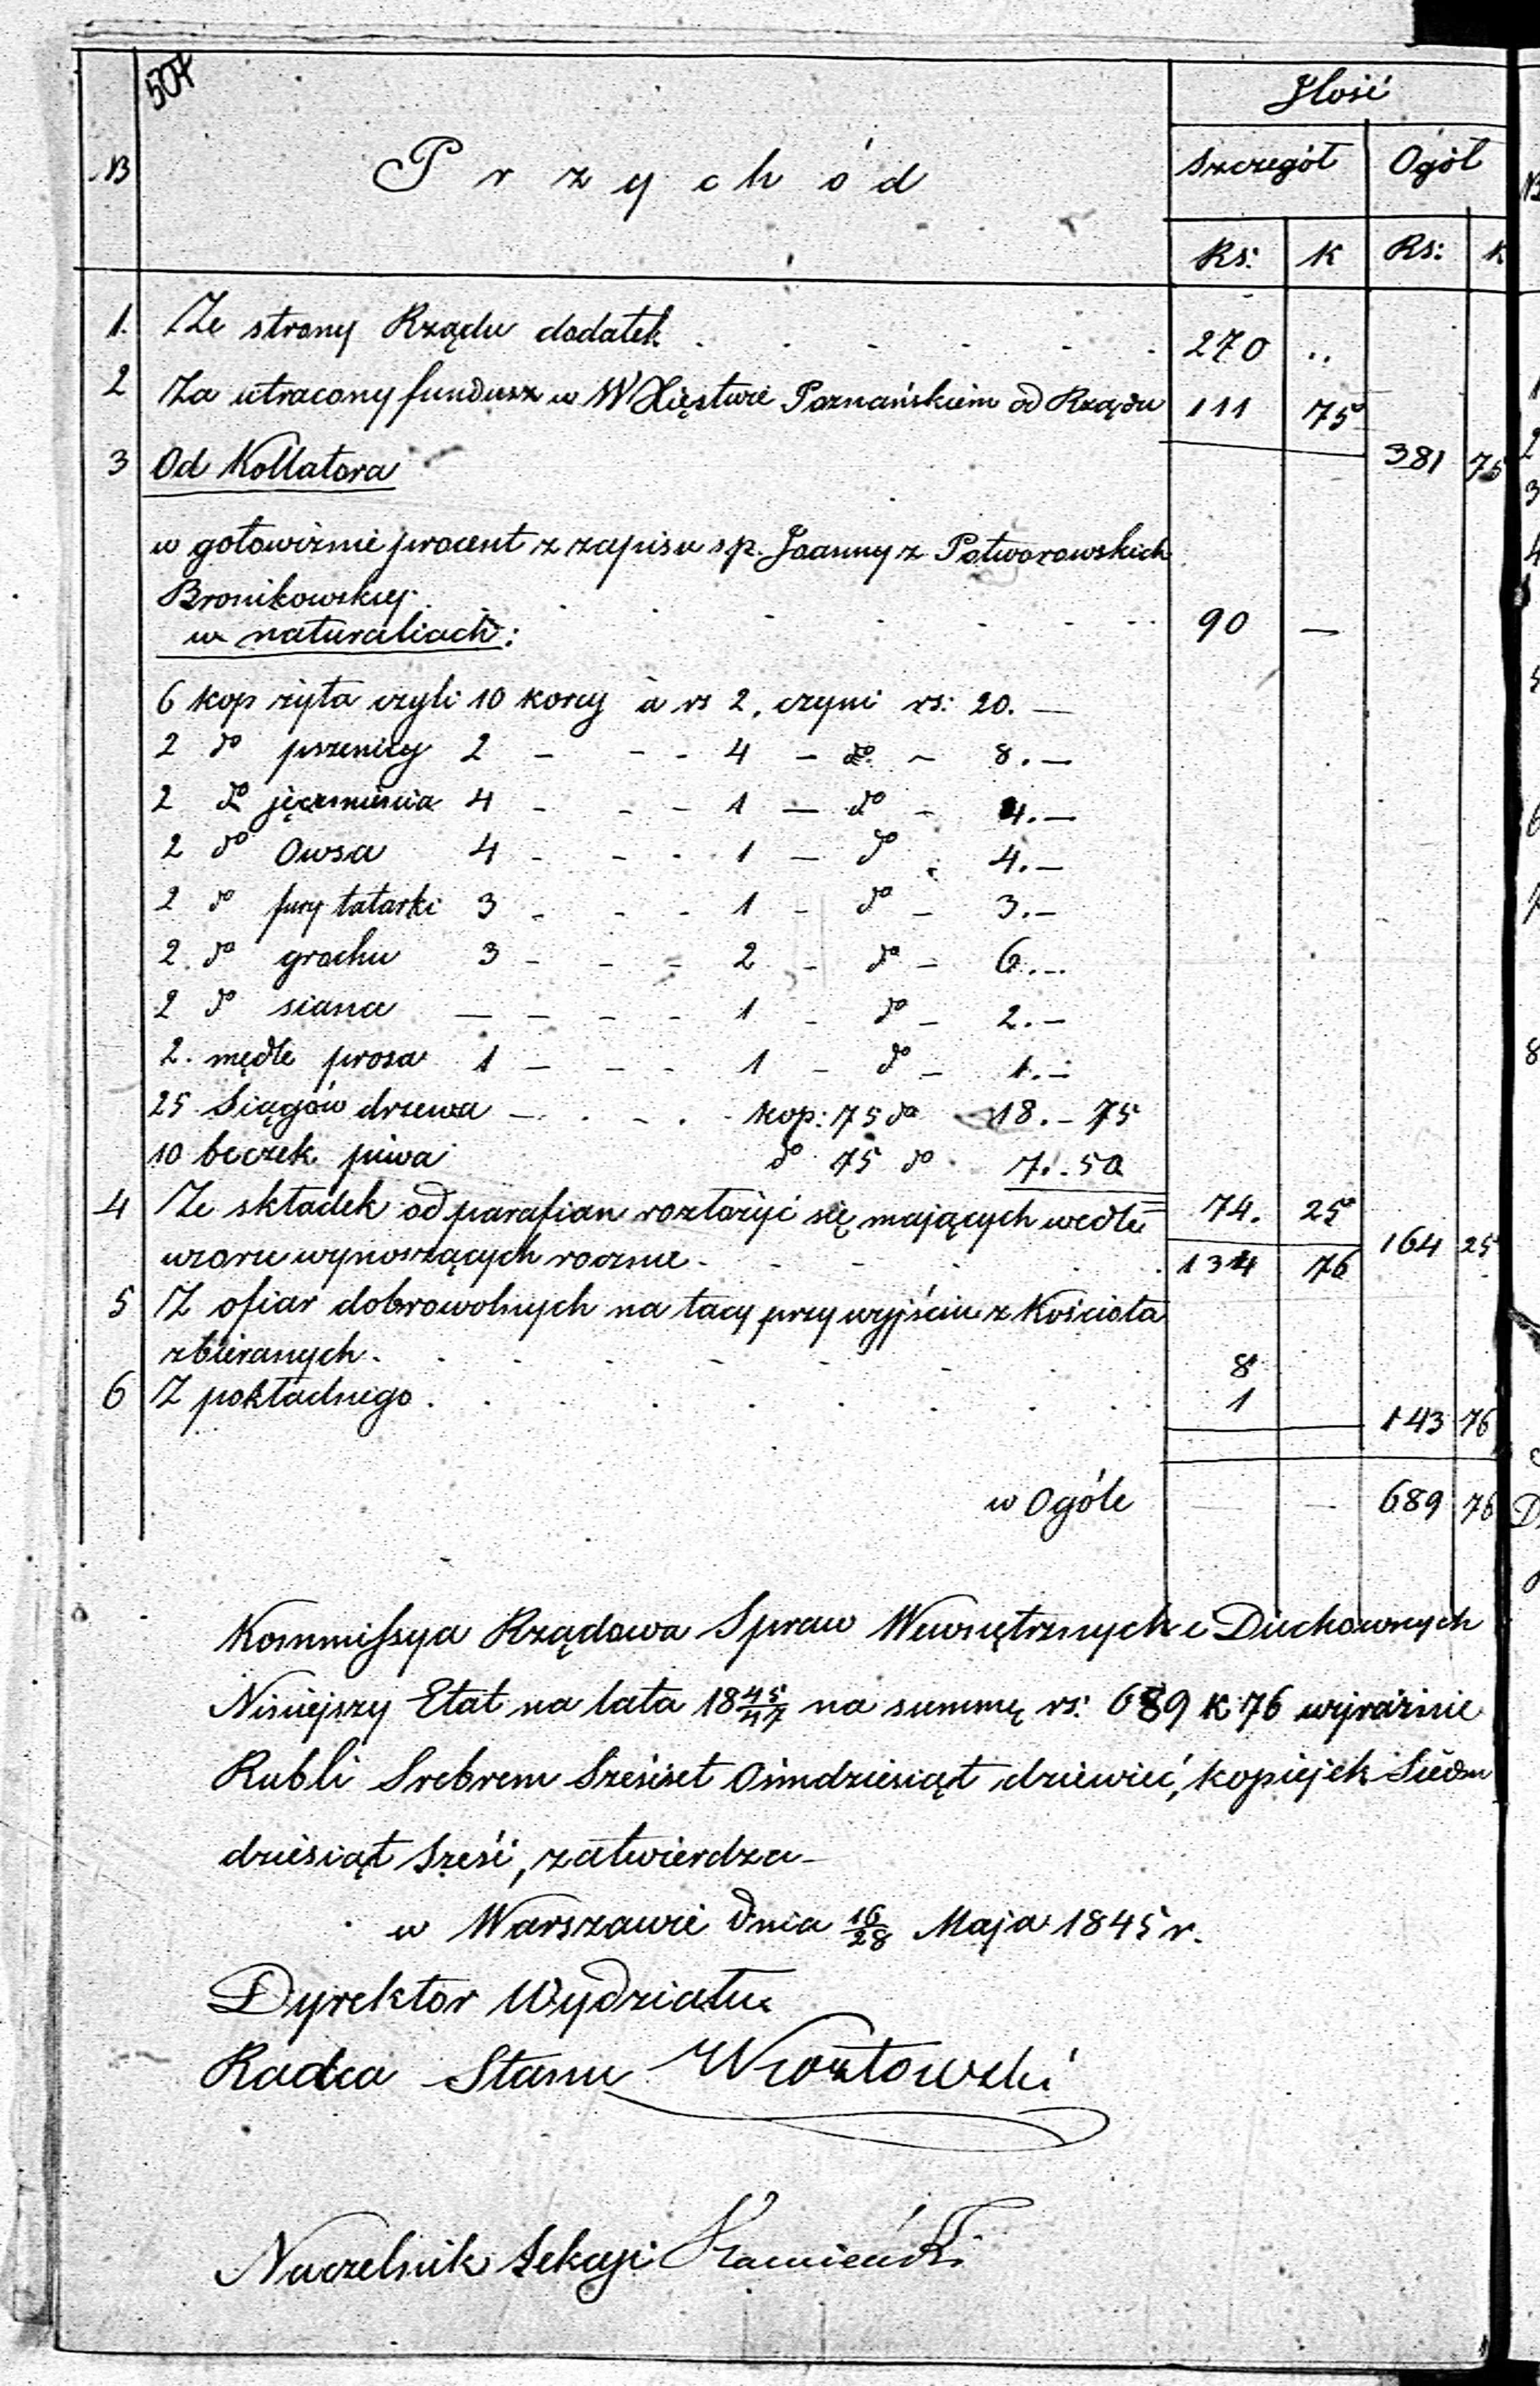 504
Ilość
№
Przychód
Szczegół Ogół
Rs: k Rs: k
1. Ze strony Rządu dodatek . . . . . . 270 ..
2 Za utracony fundusz w W Xięstwie Poznańskiem od Rządu 111 75
381 75
3 Od Kollatora
w gotowiźnie procent z zapisu sp. Joanny z Potworowskich
Bronikowskiej . . . . . . 90 —
w naturaliach:
6 kop żyta czyli 10 korcy à rs 2, czyni rs: 20. —
2 do pszenicy 2 - - - 4 - do - 8. —
2 do jęczmienia 4 - - - 1 — do - 4. —
2 do Owsa 4 - - - 1 — do . 4. —
2 do fury tatarki 3 - - - 1 - do - 3. —
2. do grochu 3 - - - 2 - do - 6. —
2 do siana — - - - 1 - do - 2. —
2. mędle prosa 1 - - - 1 - do - 1. —
25 Siągów drzewa — . - . - kop: 75 do 18. - 75
10 beczek piwa do 75 do . 7. . 50
74. 25
4 Ze składek od parafian rozłożyć się mających wedle
164 25
wzoru wynoszących rocznie . - - . 134 76
5 Z ofiar dobrowolnych na tacy przy wyjściu z Kościoła
zbieranych . . . . . . 8
6 Z pokładnego . . . . . . 1
143 76
w Ogóle — — 689 76
Kommissya Rządowa Spraw Wewnętrznych i Duchownych
Niniejszy Etat na lata 18 45/47 na summę rs: 689 k 76 wyraźnie
Rubli Srebrem Sześćset Ośmdziesiąt dziewięć, kopiejek Siedm
dziesiąt sześć, zatwierdza —
w Warszawie dnia 16/28 Maja 1845 r.
Dyrektor Wydziału
Radca Stanu
Naczelnik Sekcyi Kamieński